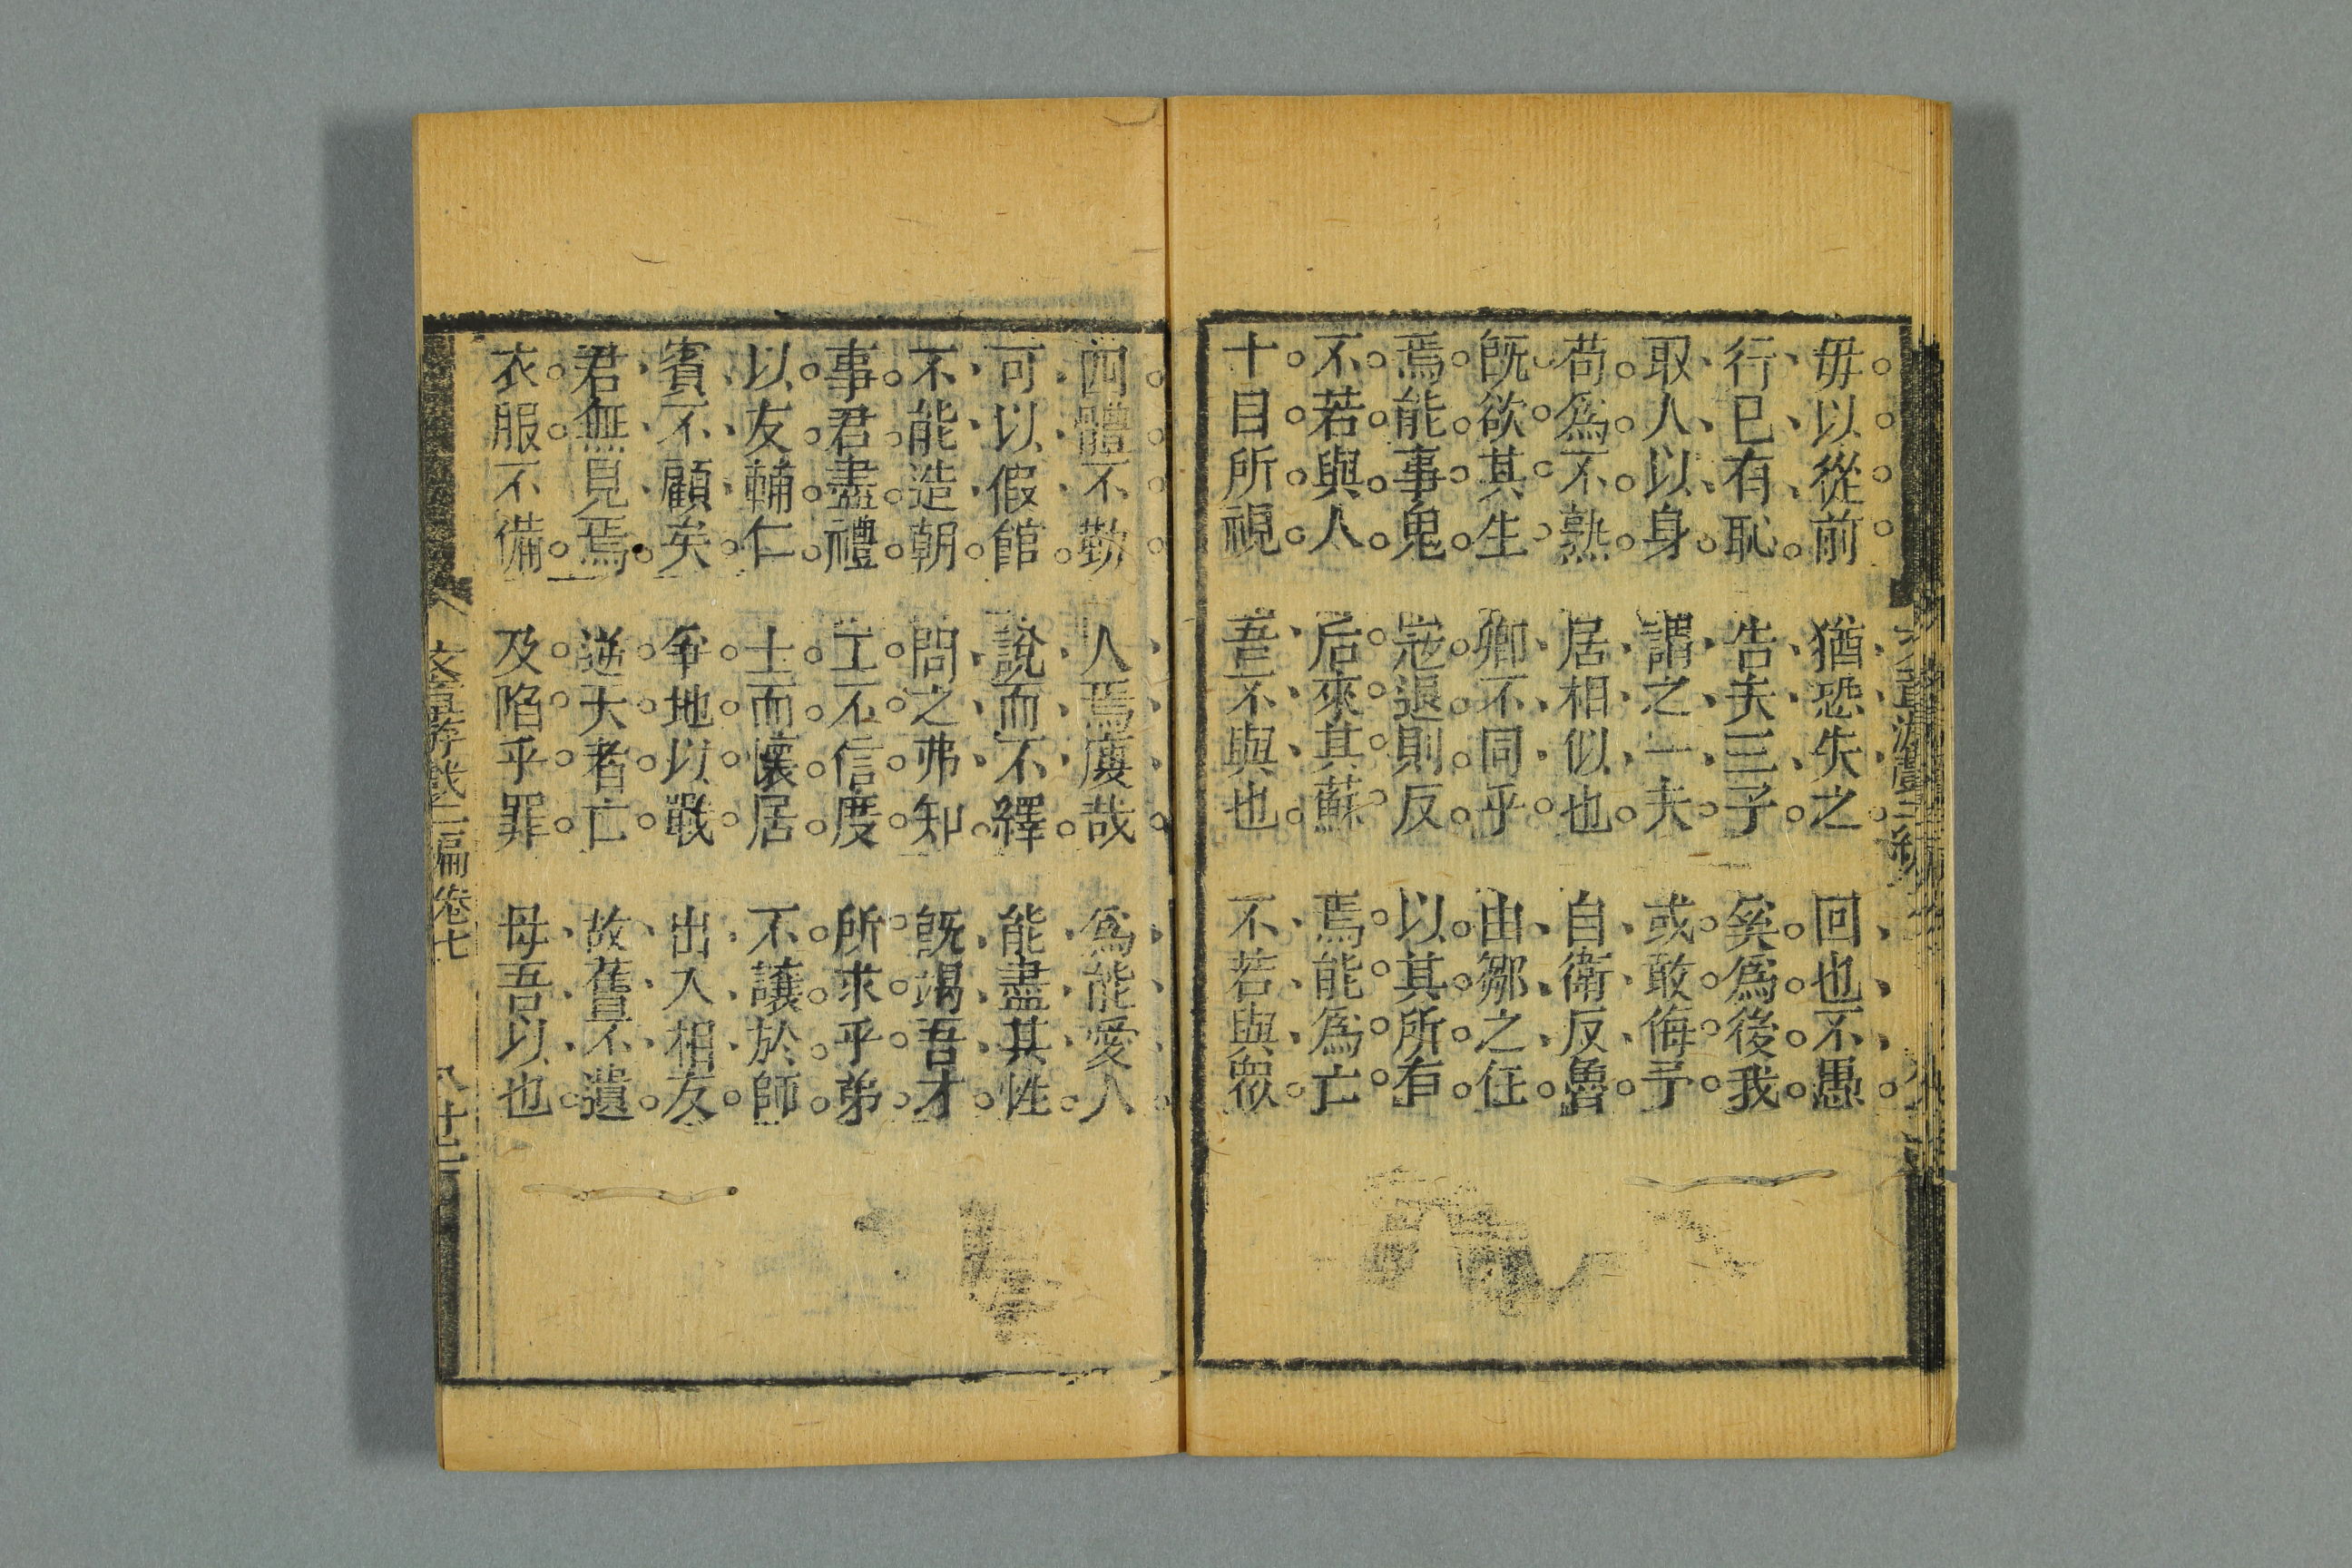 毋以從前 猶恐失之 回也不愚
行已有恥 告夫三子 矣為後我
取人以身 謂之一夫 或敢侮予
苟為不熟 居相似也 自衛反魯
旣欲其生 卿不同乎 由鄒之任
焉能事鬼 寇退則反 以其所有
不若與人 后來其蘇 焉能為亡
十目所視 吾不與也 不若與眾
四體不勤 人焉廋哉 為能愛人
可以假館 說而不繹 能盡其性
不能造朝 問之弗知 旣竭吾才
事君盡禮 工不信度 所求乎弟
以友輔仁 士而懷居 不讓於師
賓不顧矣 爭地以戰 出入相友
君無見焉 逆天者亡 故舊不遺
衣服不備 及陷乎罪 毋吾以也
二編卷七